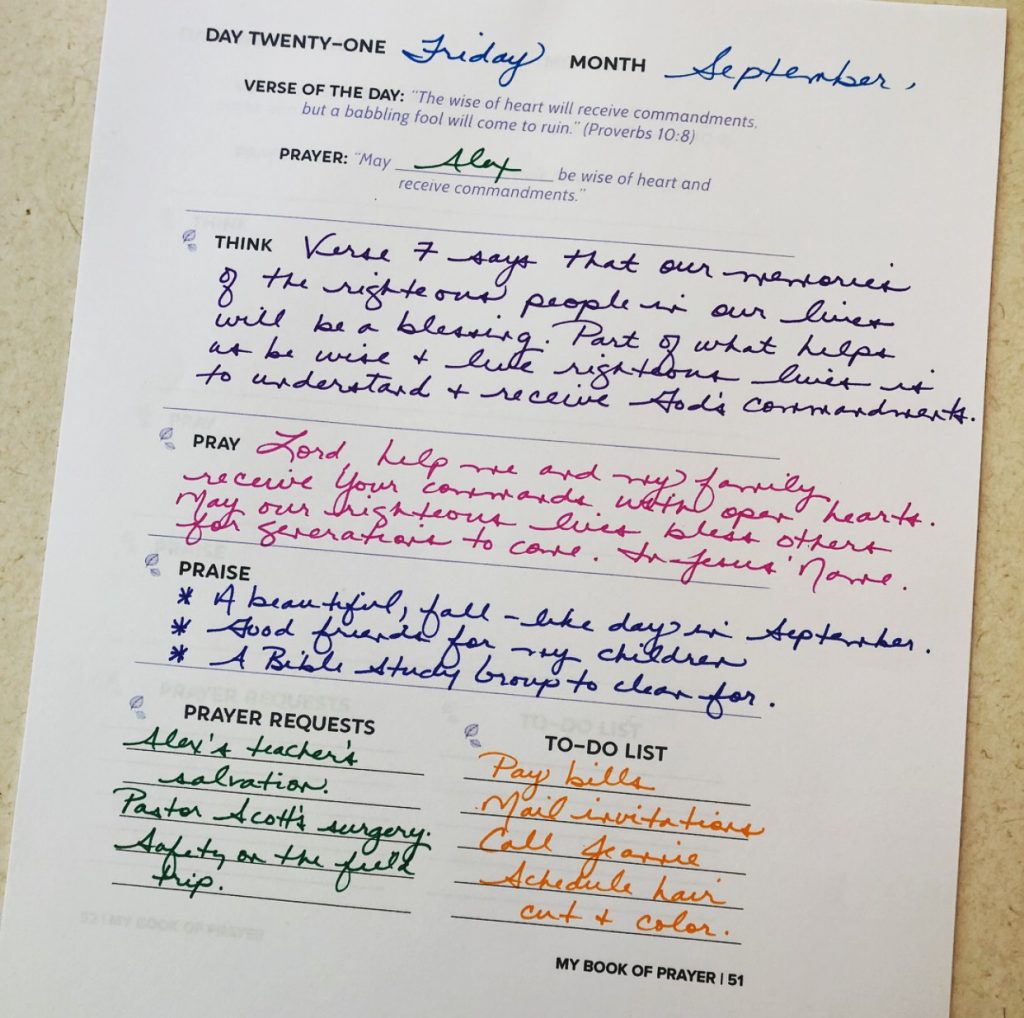 DAY TWENTY-ONE Friday MONTH September.
VERSE OF THE DAY: "The wise of heart will receive commandments.
but a babbling fool will come to ruin." (Proverbs 10:8)
PRAYER: "May Alex be wise of heart and
receive commandments."
THINK Verse 7 says that our memories
of the righteous people in our lives
will be a blessing. Part of what helps
us be wise + live righteous lives is
to understand + receive God's commandments.
PRAY Lord, help me and my family
receive Your commands with open hearts.
May our righteous lives bless others
for generations to come. In Jesus' Name.
PRAISE
* A beautiful, fall-like day in September.
* Good friends for my children
* A Bible Study Group to clean for.
PRAYER REQUESTS
Alex's teacher's
salvation.
Pastor Scott's surgery.
Safety on the field
trip.
TO-DO LIST
Pay bills
Mail invitations
Call Jeannie
Schedule hair
cut + color.
MY BOOK OF PRAYER | 51
52 | MY BOOK OF PRAYER